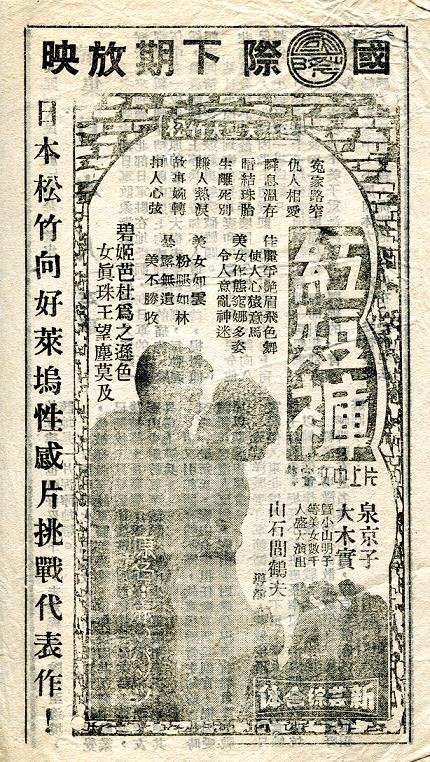 國際下期放映
日本松竹向好萊塢性感片挑戰代表作！
冤家路窄
仇人相愛
瞬息溫存
暗結珠胎
生離死別
賺人熱淚
故事婉轉
扣人心弦
紅短褲
片上中文字
佳麗爭艷眉飛色舞
使人心猿意馬
美女作態婀娜多姿
令人意亂神迷
美女如雲
粉腿如林
暴露無遺
美不勝收
碧姬芭杜爲之遜色
女眞珠王望塵莫及
泉京子
大木實
暨小山明子
等美女數千
人盛大演出
山石間鶴夫 導演
新芸綜合体